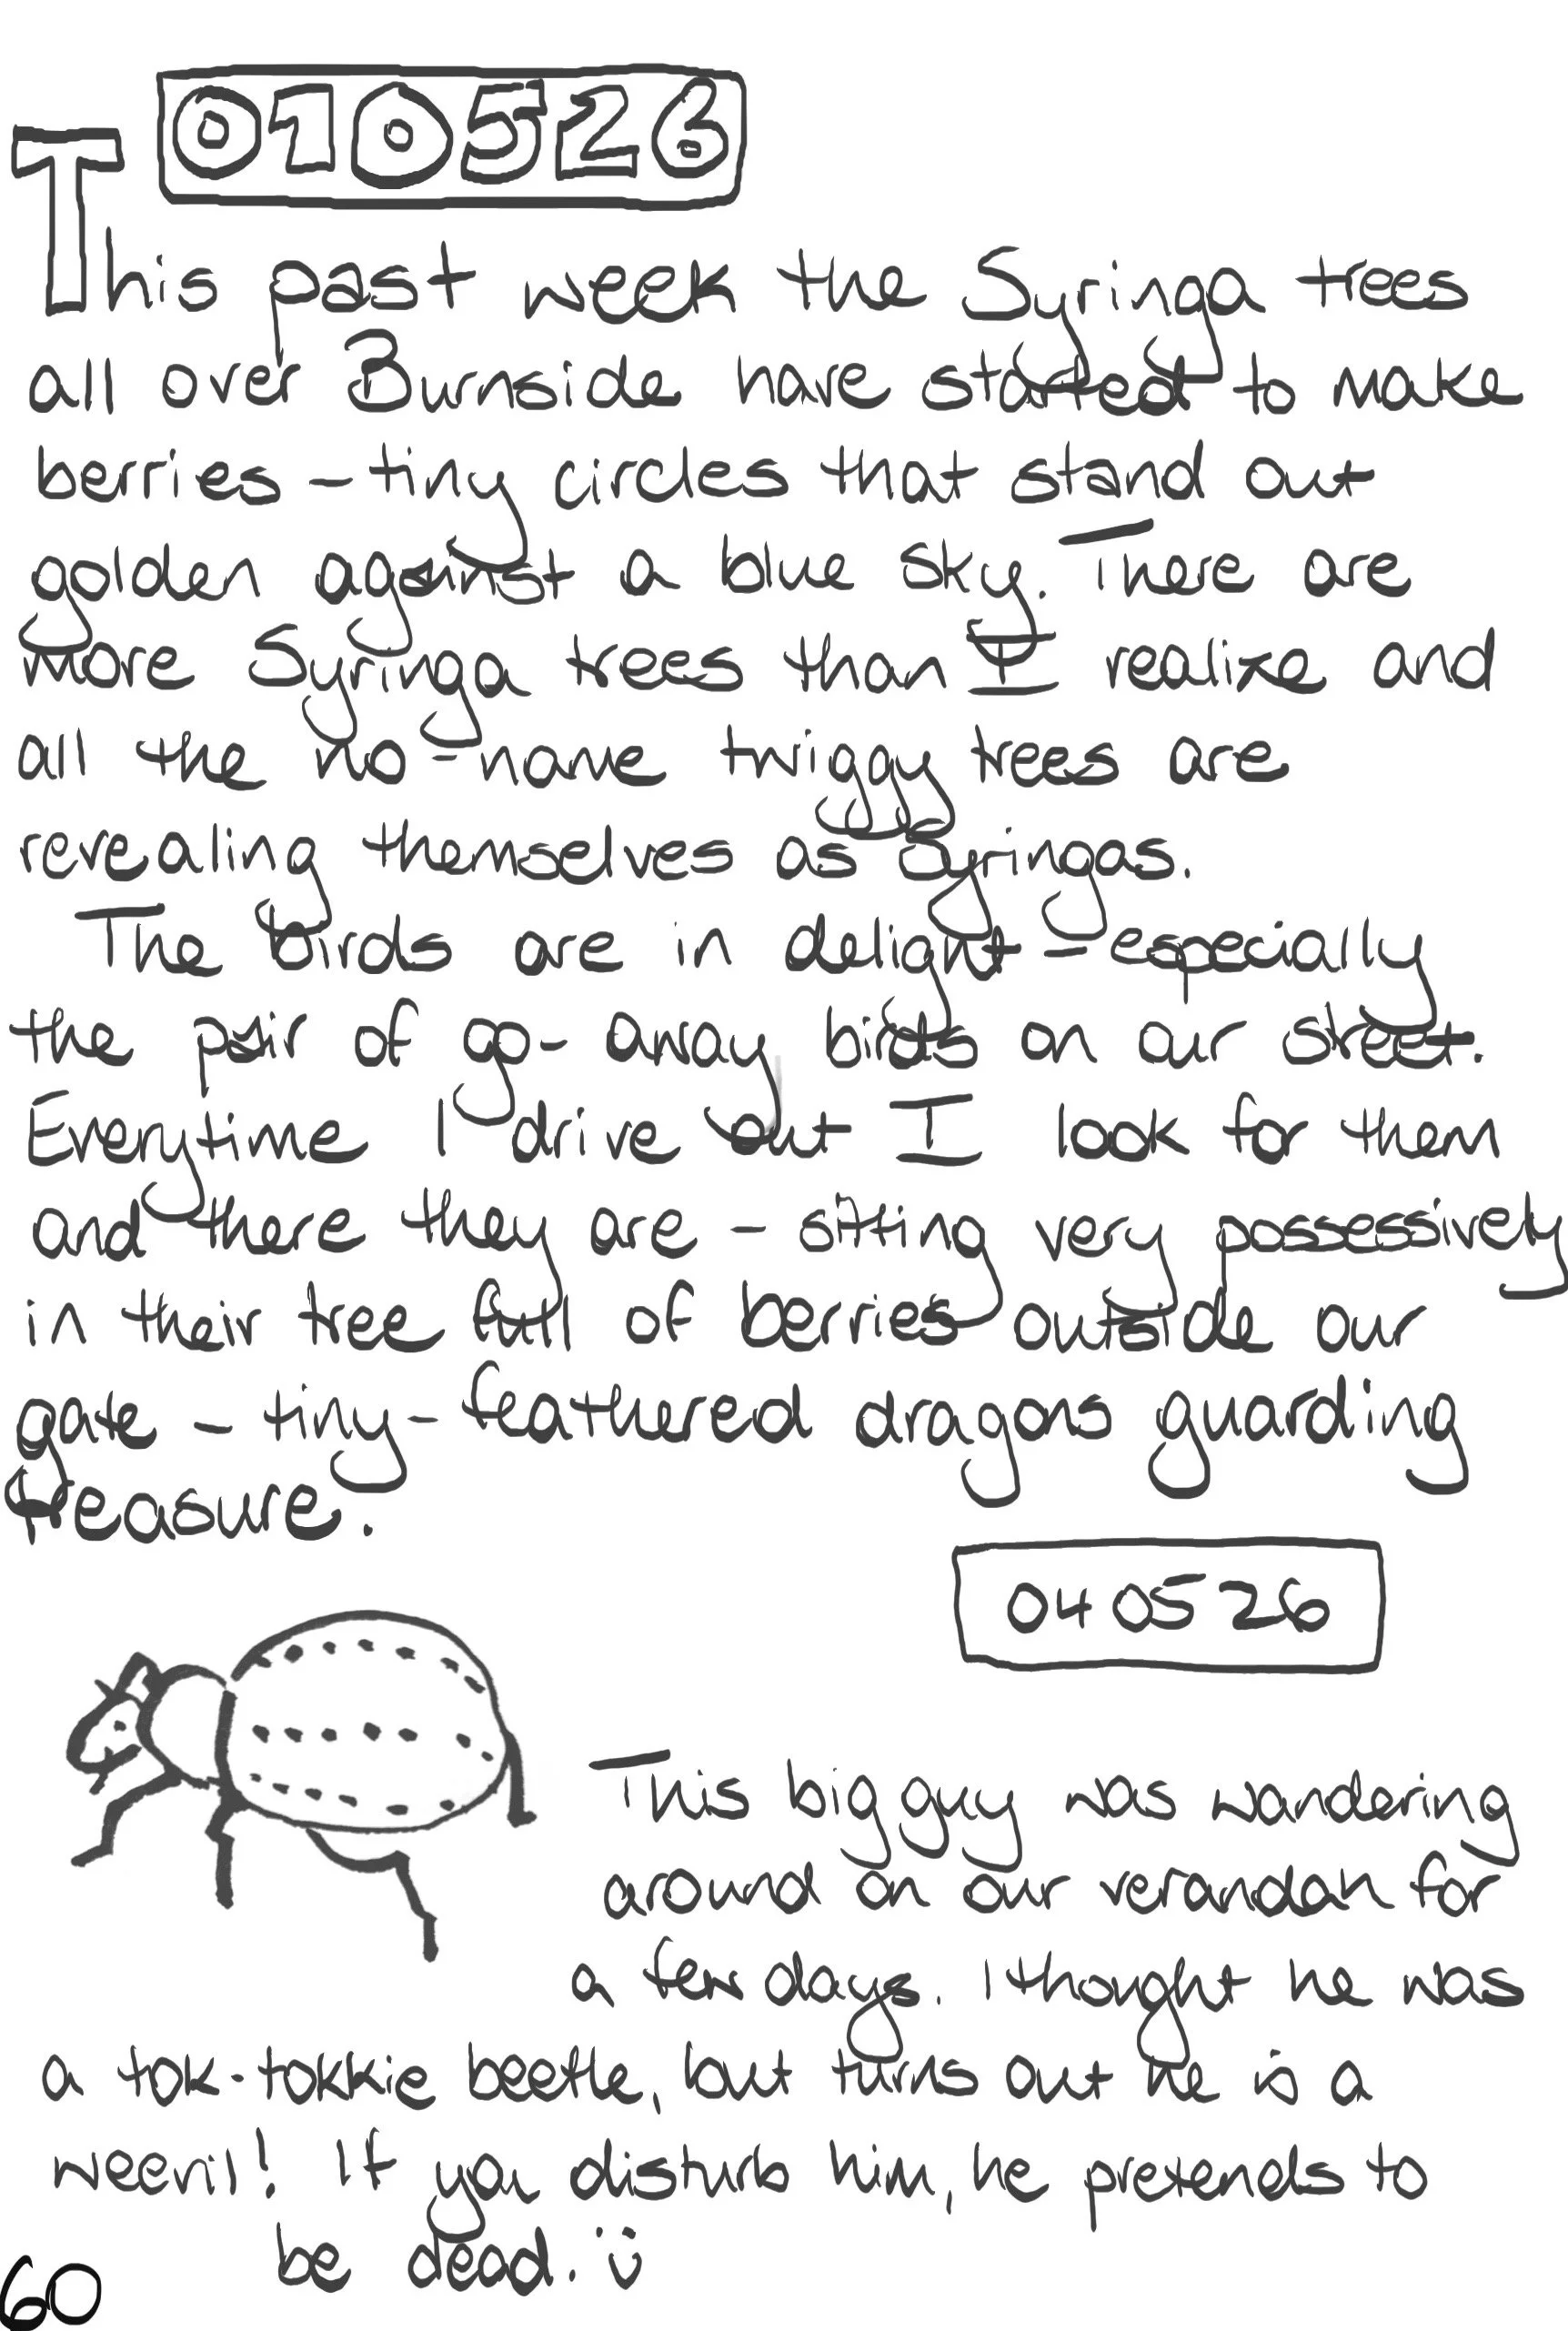 010526
This past week the Syringa trees
all over Burnside have started to make
berries – tiny circles that stand out
golden against a blue sky. There are
more Syringa trees than I realize and
all the no-name twiggy trees are
revealing themselves as Syringas.
The birds are in delight – especially
the pair of go-away birds on our street.
Everytime I drive out I look for them
and there they are – sitting very possessively
in their tree full of berries outside our
gate – tiny-feathered dragons guarding
treasure.
040526
This big guy was wandering
around on our verandah for
a few days. I thought he was
a tok-tokkie beetle, but turns out he is a
weevil! If you disturb him, he pretends to
be dead. :)
60